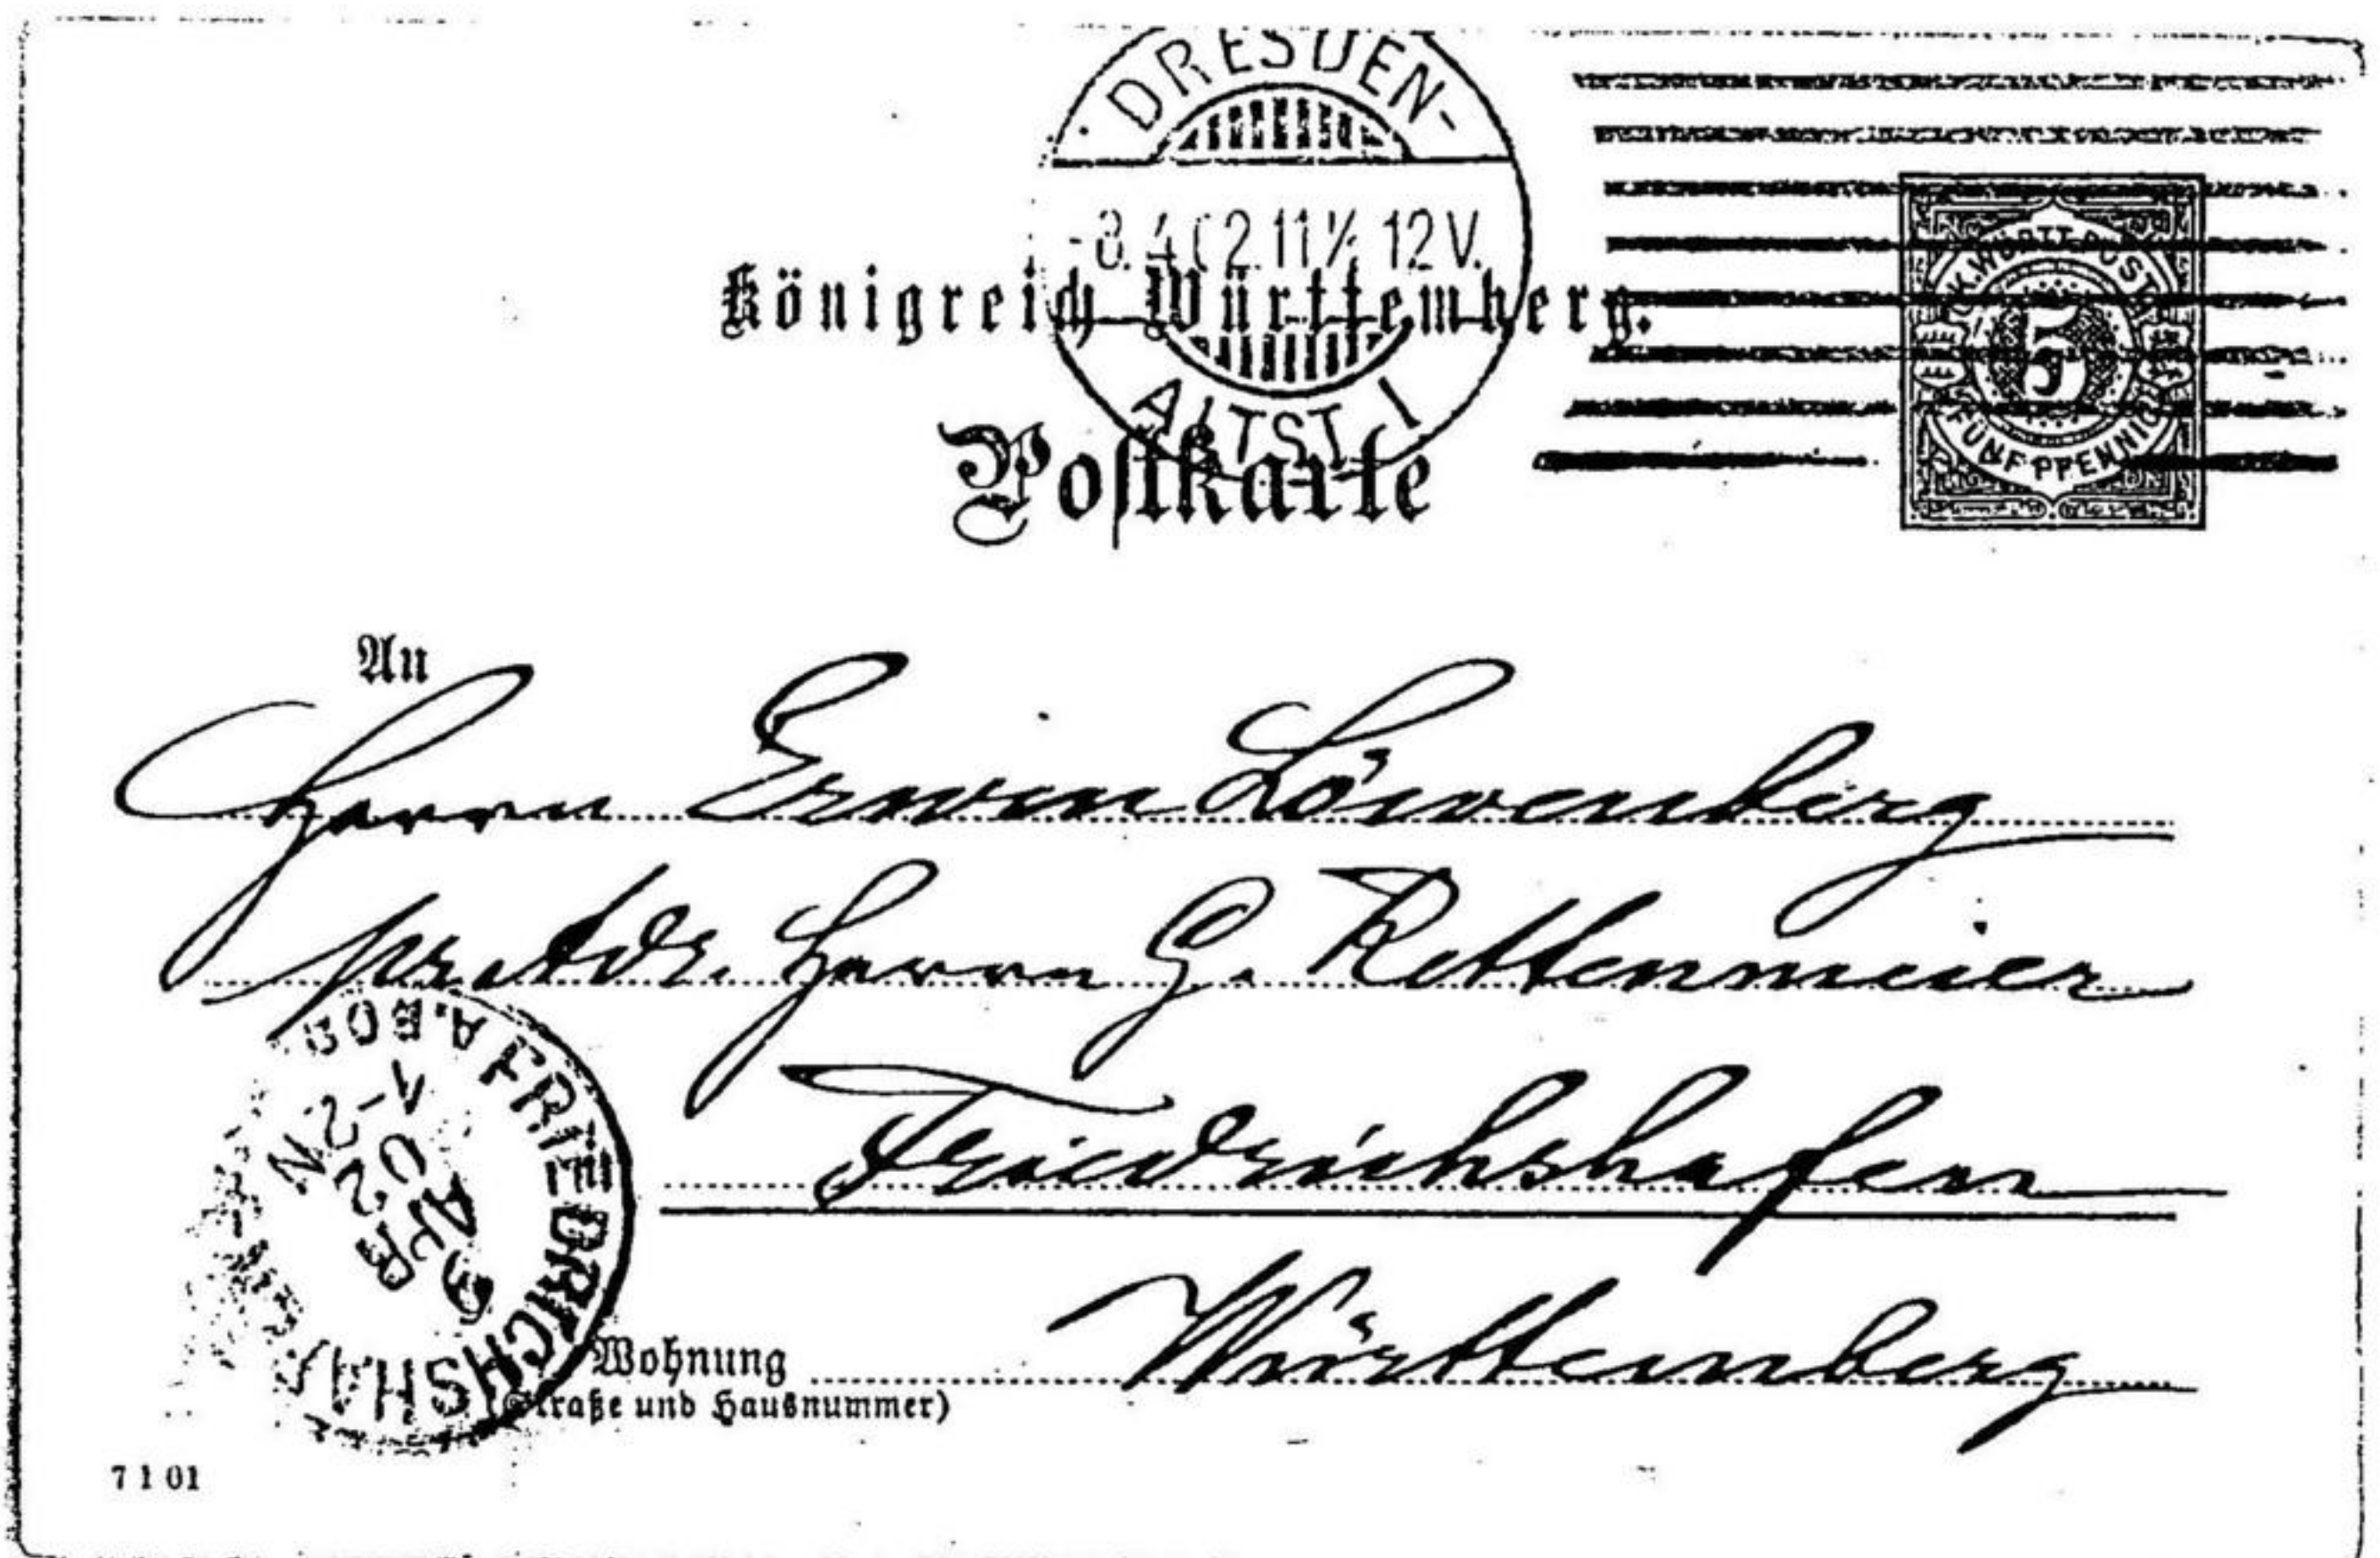 DRESDEN-
8.4.02.11½ 12V.
ALTST. 1
K. WÜRTT. POST
5
FÜNF PFENNIG
Königreich Württemberg.
Postkarte
An
Herrn Erwin Löwenberg
pr. Adr. Herrn G. Rettenmeier
Friedrichshafen
Württemberg
FRIEDRICHSHAF
9 APR 02
1-2 N
Wohnung
(Straße und Hausnummer)
7 1 01